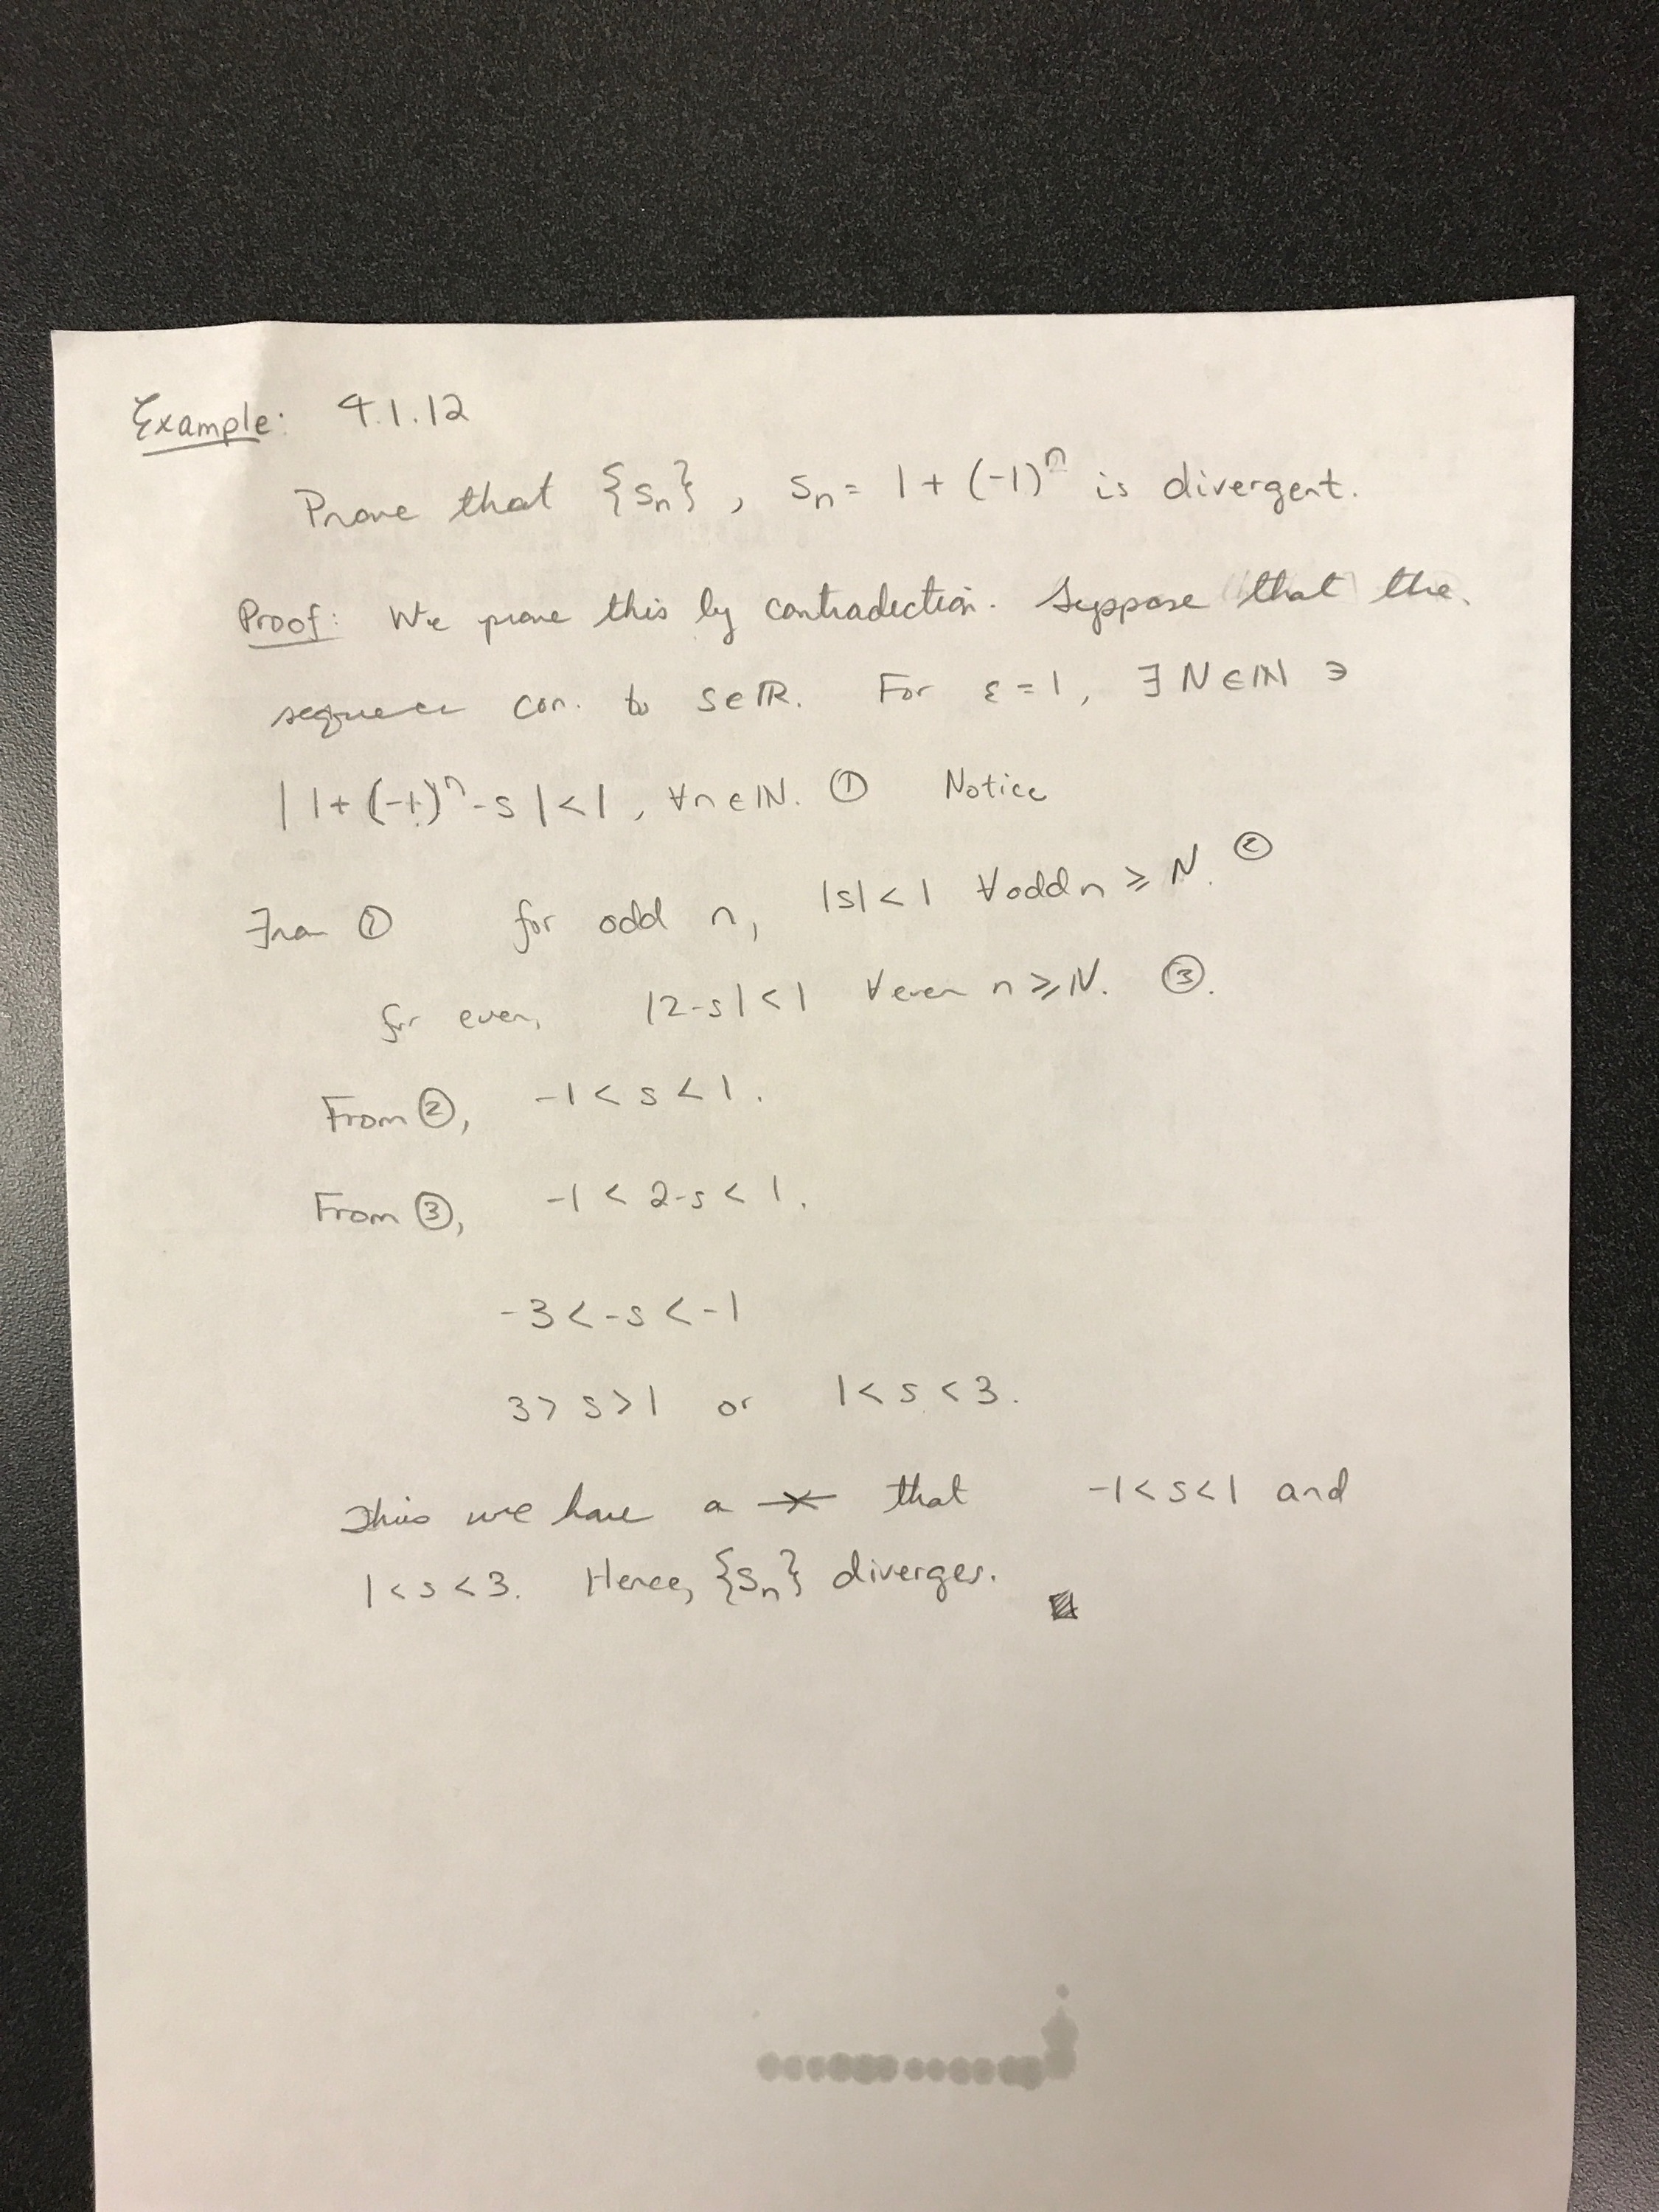 Example: 4.1.12
Prove that {sₙ}, sₙ = 1 + (-1)ⁿ is divergent.
Proof: We prove this by contradiction. Suppose that the
sequence con. to s∈ℝ. For ε = 1, ∃ N∈ℕ ∋
|1 + (-1)ⁿ - s| < 1, ∀n∈ℕ. ① Notice
From ① for odd n, |s| < 1 ∀ odd n ≥ N. ②
for even, |2-s| < 1 ∀ even n ≥ N. ③.
From ②, -1 < s < 1.
From ③, -1 < 2-s < 1.
-3 < -s < -1
3 > s > 1 or 1 < s < 3.
Thus we have a that -1 < s < 1 and
1 < s < 3. Hence, {sₙ} diverges.